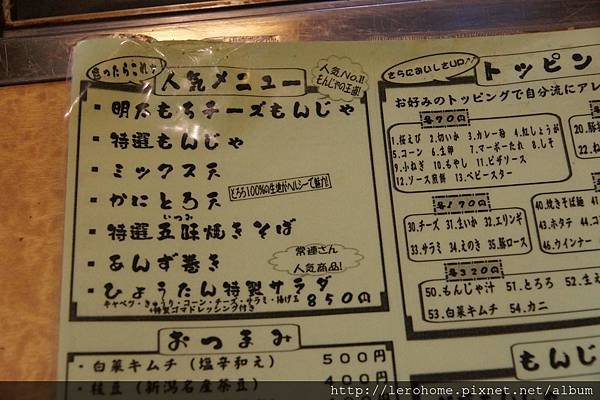 迷ったらこれ!
人気メニュー
人気No.1!!
もんじゃの王道!
・明太もちチーズもんじゃ
・特選もんじゃ
・ミックス天
・かにとろ天
とろろ100%の生地がヘルシーで魅力!
いつみ
・特選五味焼きそば
・あんず巻き
常連さん
人気商品!
・ひょうたん特製サラダ
850円
キャベツ・きゅうり・コーン・チーズ・サラミ・揚げ玉
+特製ゴマドレッシング付き
おつまみ
・白菜キムチ(塩辛和え) 500円
・枝豆(新潟名産茶豆) 400円
さらにおいしさUP♪
トッピン
お好みのトッピングで自分流にアレ
各70円
1.桜えび 2.切いか 3.カレー粉 4.紅しょうが
5.コーン 6.生卵 7.マーボーたれ 8.しそ
9.小ねぎ 10.もやし 11.ピザソース
12.ソース煎餅 13.ベビースター
20.豚
22.ね
各170円
30.チーズ 31.生いか 32.エリンギ
33.サラミ 34.えのき 35.豚ロース
40.焼きそば麺
43.ホタテ
46.ウインナー
各320円
50.もんじゃ汁 51.とろろ 52.生え
53.白菜キムチ 54.カニ
もんじ
http://lerohome.pixnet.net/album